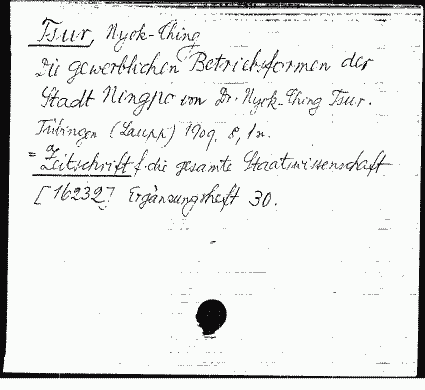 Tsur, Nyok-Ching
Die gewerblichen Betriebsformen der
Stadt Ningpo von Dr. Nyok-Ching Tsur.
Tübingen (Laupp) 1909. 8,1n.
= Zeitschrift f. die gesamte Staatswissenschaft
[16232] Ergänzungsheft 30.